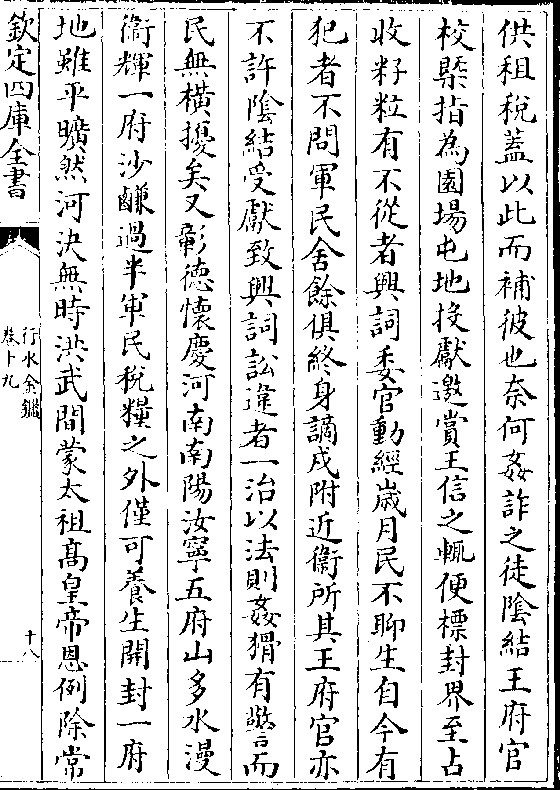 供租稅蓋以此而補彼也奈何姦詐之徒陰結王府官
校槩指為園場屯地投獻邀賞王信之輒便標封界至占
收籽粒有不從者興詞委官動經歲月民不聊生自今有
犯者不問軍民舍餘俱終身謫戍附近衞所其王府官亦
不許陰結受獻致興詞訟違者一治以法則姦猾有警而
民無橫擾矣又彰德懷慶河南南陽汝寧五府山多水漫
衞輝一府沙鹻過半軍民稅糧之外僅可養生開封一府
地雖平曠然河決無時洪武間蒙太祖高皇帝恩例除常
欽定四庫全書
行水金鑑
卷十九
十八